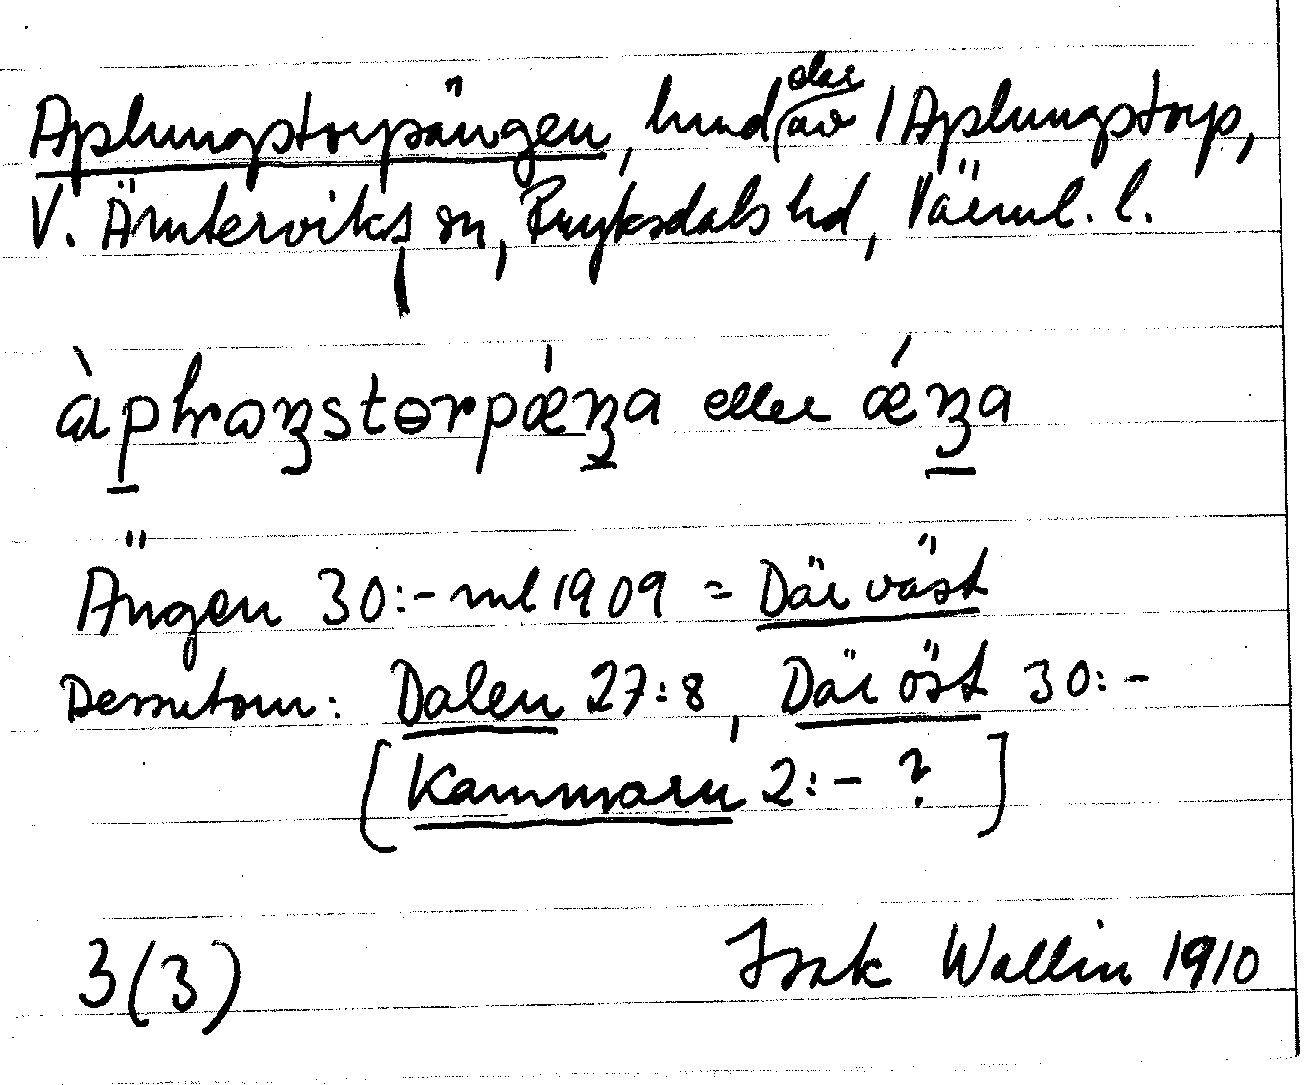 Aplungstorpängen, hmd der av / Aplungstorp,
V. Ämterviks sn, Fryksdals hd, Värml. l.
àplωŋstɵrpǽŋa eller ǽŋa
Ängen 30:- ml 1909 = Där väst
Dessutom: Dalen 27:8, Där öst 30:-
[Kammarn 2:- ?]
3(3) Isak Wallin 1910